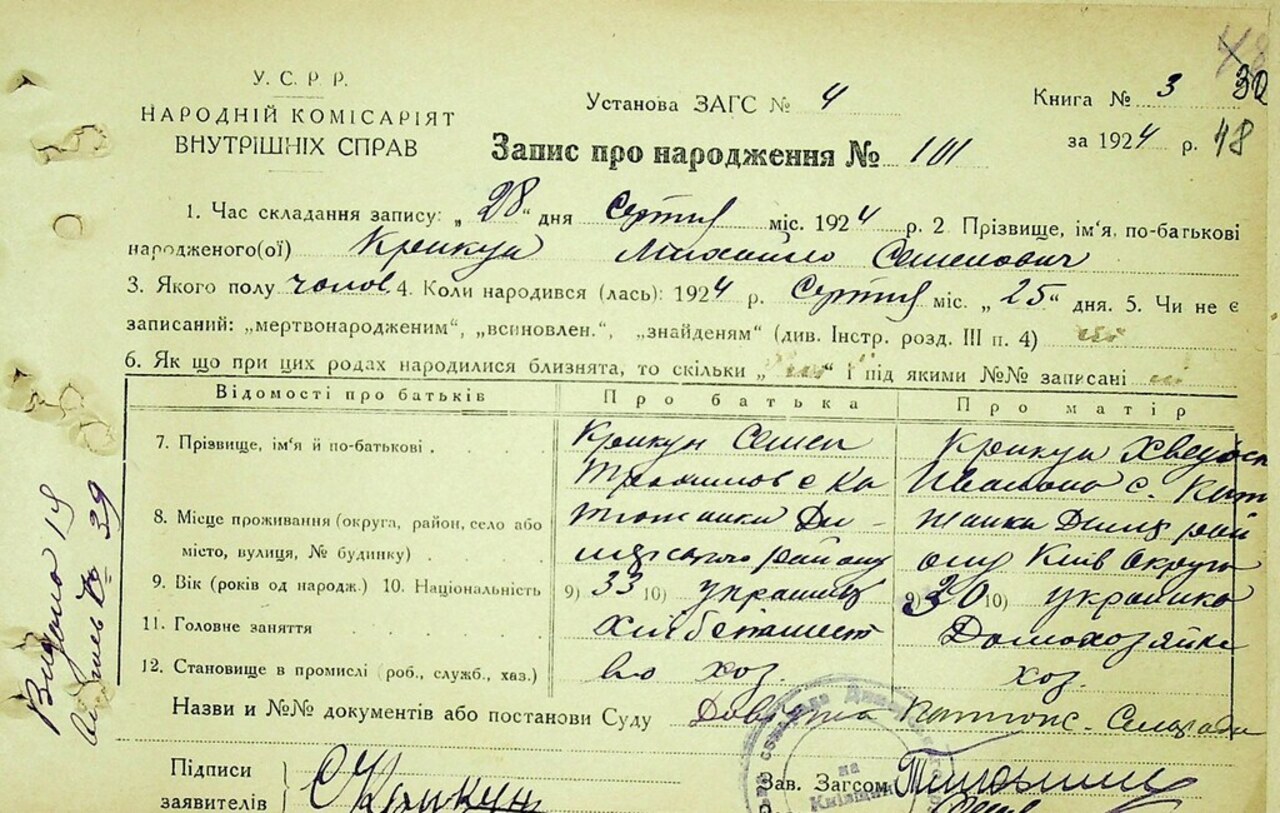 У. С. Р. Р.
НАРОДНІЙ КОМІСАРІЯТ
ВНУТРІШНІХ СПРАВ
Установа ЗАГС № 4
Книга № 3 30
за 1924 р. 48
Запис про народження № 101
1. Час складання запису: „28“ дня Серпня міс. 1924 р. 2 Прізвище, ім'я, по-батькові
народженого(ої) Крикун Михайло Семенович
3. Якого полу чолов. 4. Коли народився (лась): 1924 р. Серпня міс. „25“ дня. 5. Чи не є
записаний: „мертвонародженим“, „всиновлен.“, „знайденям“ (див. Інстр. розд. III п. 4) ні
6. Як що при цих родах народилися близнята, то скільки „ні“ і під якими №№ записані ні
Відомості про батьків Про батька Про матір
7. Прізвище, ім'я й по-батькові Крикун Семен Крикун
с. Ка Ивановна с. Кат
8. Місце проживання (округа, район, село або тюжанки южанка
місто, вулиця, № будинку) району Київ Округа
9. Вік (років од народж.) 10. Національність 9) 33 10) українець 9) 30 10) українка
11. Головне заняття хлібопашест Домохозяйка
12. Становище в промислі (роб., служб., хаз.) во хоз. хоз.
Назви и №№ документів або постанови Суду Довідка Сельради
Підписи
заявителів С Крикун
Зав. Загсом
на
Київщині
Видано 19
39